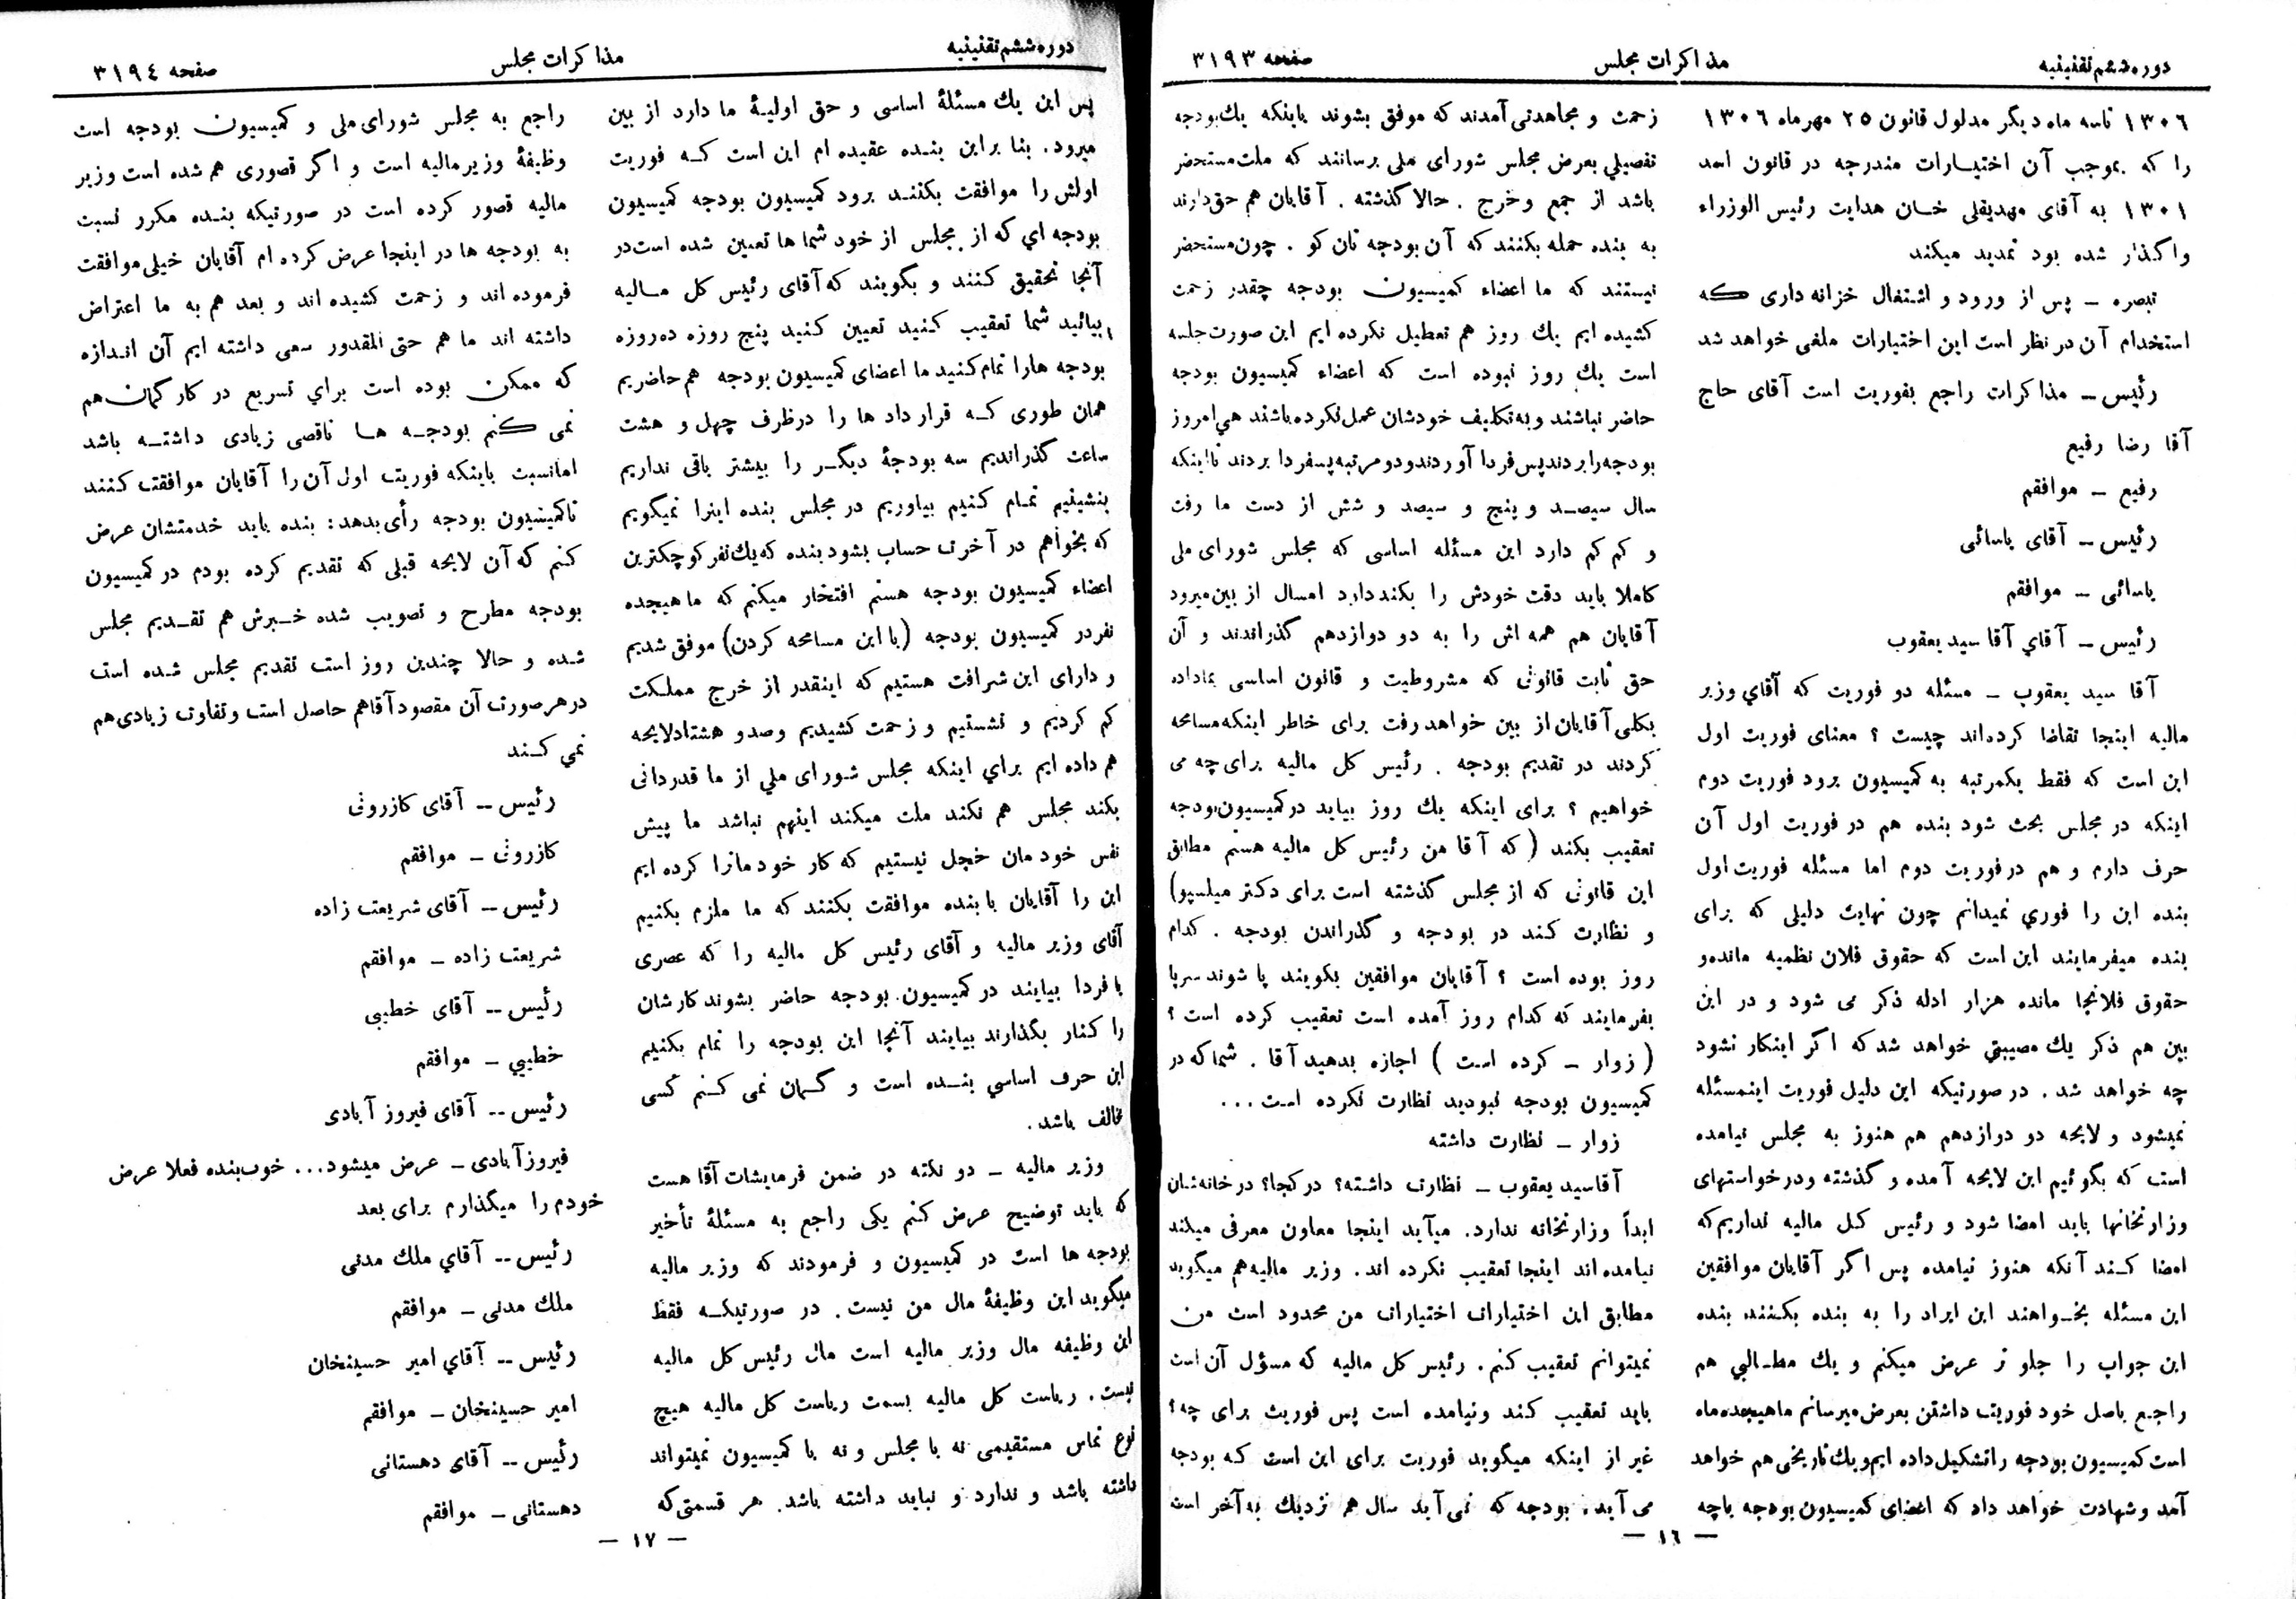 دوره ششم تقنینیه
مذاکرات مجلس
صفحه ۳۱۹۳
۱۳۰۶ تا سه ماه دیگر مدلول قانون ۲۵ مهر ماه ۱۳۰۶
را که بموجب آن اختیارات مندرجه در قانون اسد
۱۳۰۱ به آقای مهدیقلی خان هدایت رئیس الوزراء
واگذار شده بود تمدید میکند
تبصره – پس از ورود و اشتغال خزانه داری که
استخدام آن در نظر است این اختیارات ملغی خواهد شد
رئیس – مذاکرات راجع بفوریت است آقای حاج
آقا رضا رفیع
رفیع – موافقم
رئیس – آقای یاسائی
یاسائی – موافقم
رئیس – آقاي آقا سید یعقوب
آقا سید یعقوب – مسئله دو فوریت که آقاي وزیر
مالیه اینجا تقاضا کرده‌اند چیست ؟ معنای فوریت اول
این است که فقط یکمرتبه به کمیسیون برود فوریت دوم
اینکه در مجلس بحث شود بنده هم در فوریت اول آن
حرف دارم و هم در فوریت دوم اما مسئله فوریت اول
بنده این را فوري نمیدانم چون نهایت دلیلی که برای
بنده میفرمایند این است که حقوق فلان نظمیه مانده و
حقوق فلانجا مانده هزار ادله ذکر می شود و در این
بین هم ذکر یك مصیبتي خواهد شد که اگر اینکار نشود
چه خواهد شد . در صورتیکه این دلیل فوریت اینمسئله
نمیشود و لایحه دو دوازدهم هم هنوز به مجلس نیامده
است که بگوئیم این لایحه آمده و گذشته و درخواستهای
وزارتخانها باید امضا شود و رئیس کل مالیه نداریم که
امضا کند آنکه هنوز نیامده پس اگر آقایان موافقین
این مسئله بخواهند این ایراد را به بنده بکنند، بنده
این جواب را جلو تر عرض میکنم و یك مطالبي هم
راجع باصل خود فوریت داشتن بعرض میرسانم ما هیجده ماه
است کمیسیون بودجه را تشکیل داده ایم و یك تاریخی هم خواهد
آمد و شهادت خواهد داد که اعضای کمیسیون بودجه باچه
زحمت و مجاهدتی آمدند که موفق بشوند باینکه یك بودجه
تفصیلي بعرض مجلس شورای ملی برسانند که ملت مستحضر
باشد از جمع و خرج . حالا گذشته . آقایان هم حق دارند
به بنده حمله بکنند که آن بودجه تان کو . چون مستحضر
نیستند که ما اعضاء کمیسیون بودجه چقدر زحمت
کشیده ایم یك روز هم تعطیل نکرده ایم این صورت جلسه
است یك روز نبوده است که اعضاء کمیسیون بودجه
حاضر نباشند و به تکلیف خودشان عمل نکرده باشند هي امروز
بودجه را بردند پس فردا آوردند و دو مرتبه پسفردا بردند تا اینکه
سال سیصد و پنج و سیصد و شش از دست ما رفت
و کم کم دارد این مسئله اساسی که مجلس شورای ملی
کاملا باید دقت خودش را بکند دارد امسال از بین میرود
آقایان هم همه اش را به دو دوازدهم گذراندند و آن
حق ثابت قانونی که مشروطیت و قانون اساسی بما داده
بکلی آقایان از بین خواهد رفت برای خاطر اینکه مسامحه
کردند در تقدیم بودجه . رئیس کل مالیه برای چه می
خواهیم ؟ برای اینکه یك روز بیاید در کمیسیون بودجه
تعقیب بکند ( که آقا من رئیس کل مالیه هستم مطابق
این قانونی که از مجلس گذشته است برای دکتر میلسپو)
و نظارت کند در بودجه و گذراندن بودجه . کدام
روز بوده است ؟ آقایان موافقین بگویند پا شوند سر پا
بفرمایند که کدام روز آمده است تعقیب کرده است ؟
( زوار – کرده است ) اجازه بدهید آقا . شما که در
کمیسیون بودجه نبودید نظارت نکرده است...
زوار – نظارت داشته
آقا سید یعقوب – نظارت داشته؟ در کجا؟ در خانه‌شان
ابداً وزارتخانه ندارد. میآید اینجا معاون معرفی میکند
نیامده اند اینجا تعقیب نکرده اند. وزیر مالیه هم میگوید
مطابق این اختیارات اختیارات من محدود است من
نمیتوانم تعقیب کنم. رئیس کل مالیه که مسؤل آن است
باید تعقیب کند و نیامده است پس فوریت برای چه؟
غیر از اینکه میگوید فوریت برای این است که بودجه
می آید، بودجه که نمی آید سال هم نزدیك به آخر است
– ۱۶ –
دوره ششم تقنینیه
مذاکرات مجلس
صفحه ۳۱۹٤
پس این یك مسئلۀ اساسی و حق اولیۀ ما دارد از بین
میرود. بنا بر این بنده عقیده ام این است که فوریت
اولش را موافقت بکنند برود کمیسیون بودجه کمیسیون
بودجه اي که از مجلس از خود شما ها تعیین شده است در
آنجا تحقیق کنند و بگویند که آقای رئیس کل مالیه
بیائید شما تعقیب کنید تعیین کنید پنج روزه ده روزه
بودجه هارا تمام کنید ما اعضای کمیسیون بودجه هم حاضریم
همان طوری که قرار داد ها را در ظرف چهل و هشت
ساعت گذراندیم سه بودجۀ دیگر را بیشتر باقی نداریم
بنشینیم تمام کنیم بیاوریم در مجلس بنده اینرا نمیگویم
که بخواهم در آخرت حساب بشود بنده که یك نفر کوچکترین
اعضاء کمیسیون بودجه هستم افتخار میکنم که ما هیجده
نفر در کمیسیون بودجه (با این مسامحه کردن) موفق شدیم
و دارای این شرافت هستیم که اینقدر از خرج مملکت
کم کردیم و نشستیم و زحمت کشیدیم و صد و هشتاد لایحه
هم داده ایم براي اینکه مجلس شورای ملي از ما قدردانی
بکند مجلس هم نکند ملت میکند اینهم نباشد ما پیش
نفس خودمان خجل نیستیم که کار خودمانرا کرده ایم
این را آقایان با بنده موافقت بکنند که ما ملزم بکنیم
آقای وزیر مالیه و آقای رئیس کل مالیه را که عصری
یا فردا بیایند در کمیسیون بودجه حاضر بشوند کارشان
را کنار بگذارند بیایند آنجا این بودجه را تمام بکنیم
این حرف اساسي بنده است و گمان نمی کنم کسی
مخالف باشد.
وزیر مالیه – دو نکته در ضمن فرمایشات آقا هست
که باید توضیح عرض کنم یکی راجع به مسئلۀ تأخیر
بودجه ها است در کمیسیون و فرمودند که وزیر مالیه
میگوید این وظیفۀ مال من نیست. در صورتیکه فقط
این وظیفه مال وزیر مالیه است مال رئیس کل مالیه
نیست. ریاست کل مالیه بسمت ریاست کل مالیه هیچ
نوع تماس مستقیمی نه با مجلس و نه با کمیسیون نمیتواند
داشته باشد و ندارد و نباید داشته باشد. هر قسمتی که
راجع به مجلس شورای ملی و کمیسیون بودجه است
وظیفۀ وزیر مالیه است و اگر قصوری هم شده است وزیر
مالیه قصور کرده است در صورتیکه بنده مکرر نسبت
به بودجه ها در اینجا عرض کرده ام آقایان خیلی موافقت
فرموده اند و زحمت کشیده اند و بعد هم به ما اعتراض
داشته اند ما هم حتی المقدور سعی داشته ایم آن اندازه
که ممکن بوده است براي تسریع در کار گمان هم
نمی کنم بودجه ها ناقصی زیادی داشته باشد
اما نسبت باینکه فوریت اول آن را آقایان موافقت کنند
تا کمیسیون بودجه رأی بدهد: بنده باید خدمتشان عرض
کنم که آن لایحه قبلی که تقدیم کرده بودم در کمیسیون
بودجه مطرح و تصویب شده خبرش هم تقدیم مجلس
شده و حالا چندین روز است تقدیم مجلس شده است
در هر صورت آن مقصود آقا هم حاصل است و تفاوت زیادی هم
نمي کند
رئیس – آقای کازرونی
کازرونی – موافقم
رئیس – آقای شریعت زاده
شریعت زاده – موافقم
رئیس – آقای خطیبی
خطیبي – موافقم
رئیس – آقای فیروز آبادی
فیروزآبادی – عرض میشود... خوب بنده فعلا عرض
خودم را میگذارم برای بعد
رئیس – آقاي ملك مدنی
ملك مدنی – موافقم
رئیس – آقاي امیر حسینخان
امیر حسینخان – موافقم
رئیس – آقای دهستانی
دهستانی – موافقم
– ۱۷ –